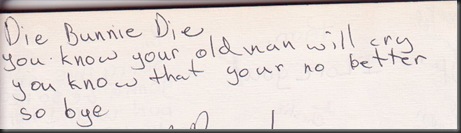 Die Bunnie Die
you know your oldman will cry
you know that your no better
so bye